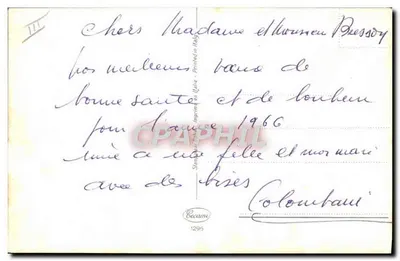 III
Chers Madame et Monsieur Bresson
nos meilleurs vœux de
bonne santé et de bonheur
pour l'année 1966
unie à ma fille et mon mari
avec des bises
Colombani
CPAPHIL
1295